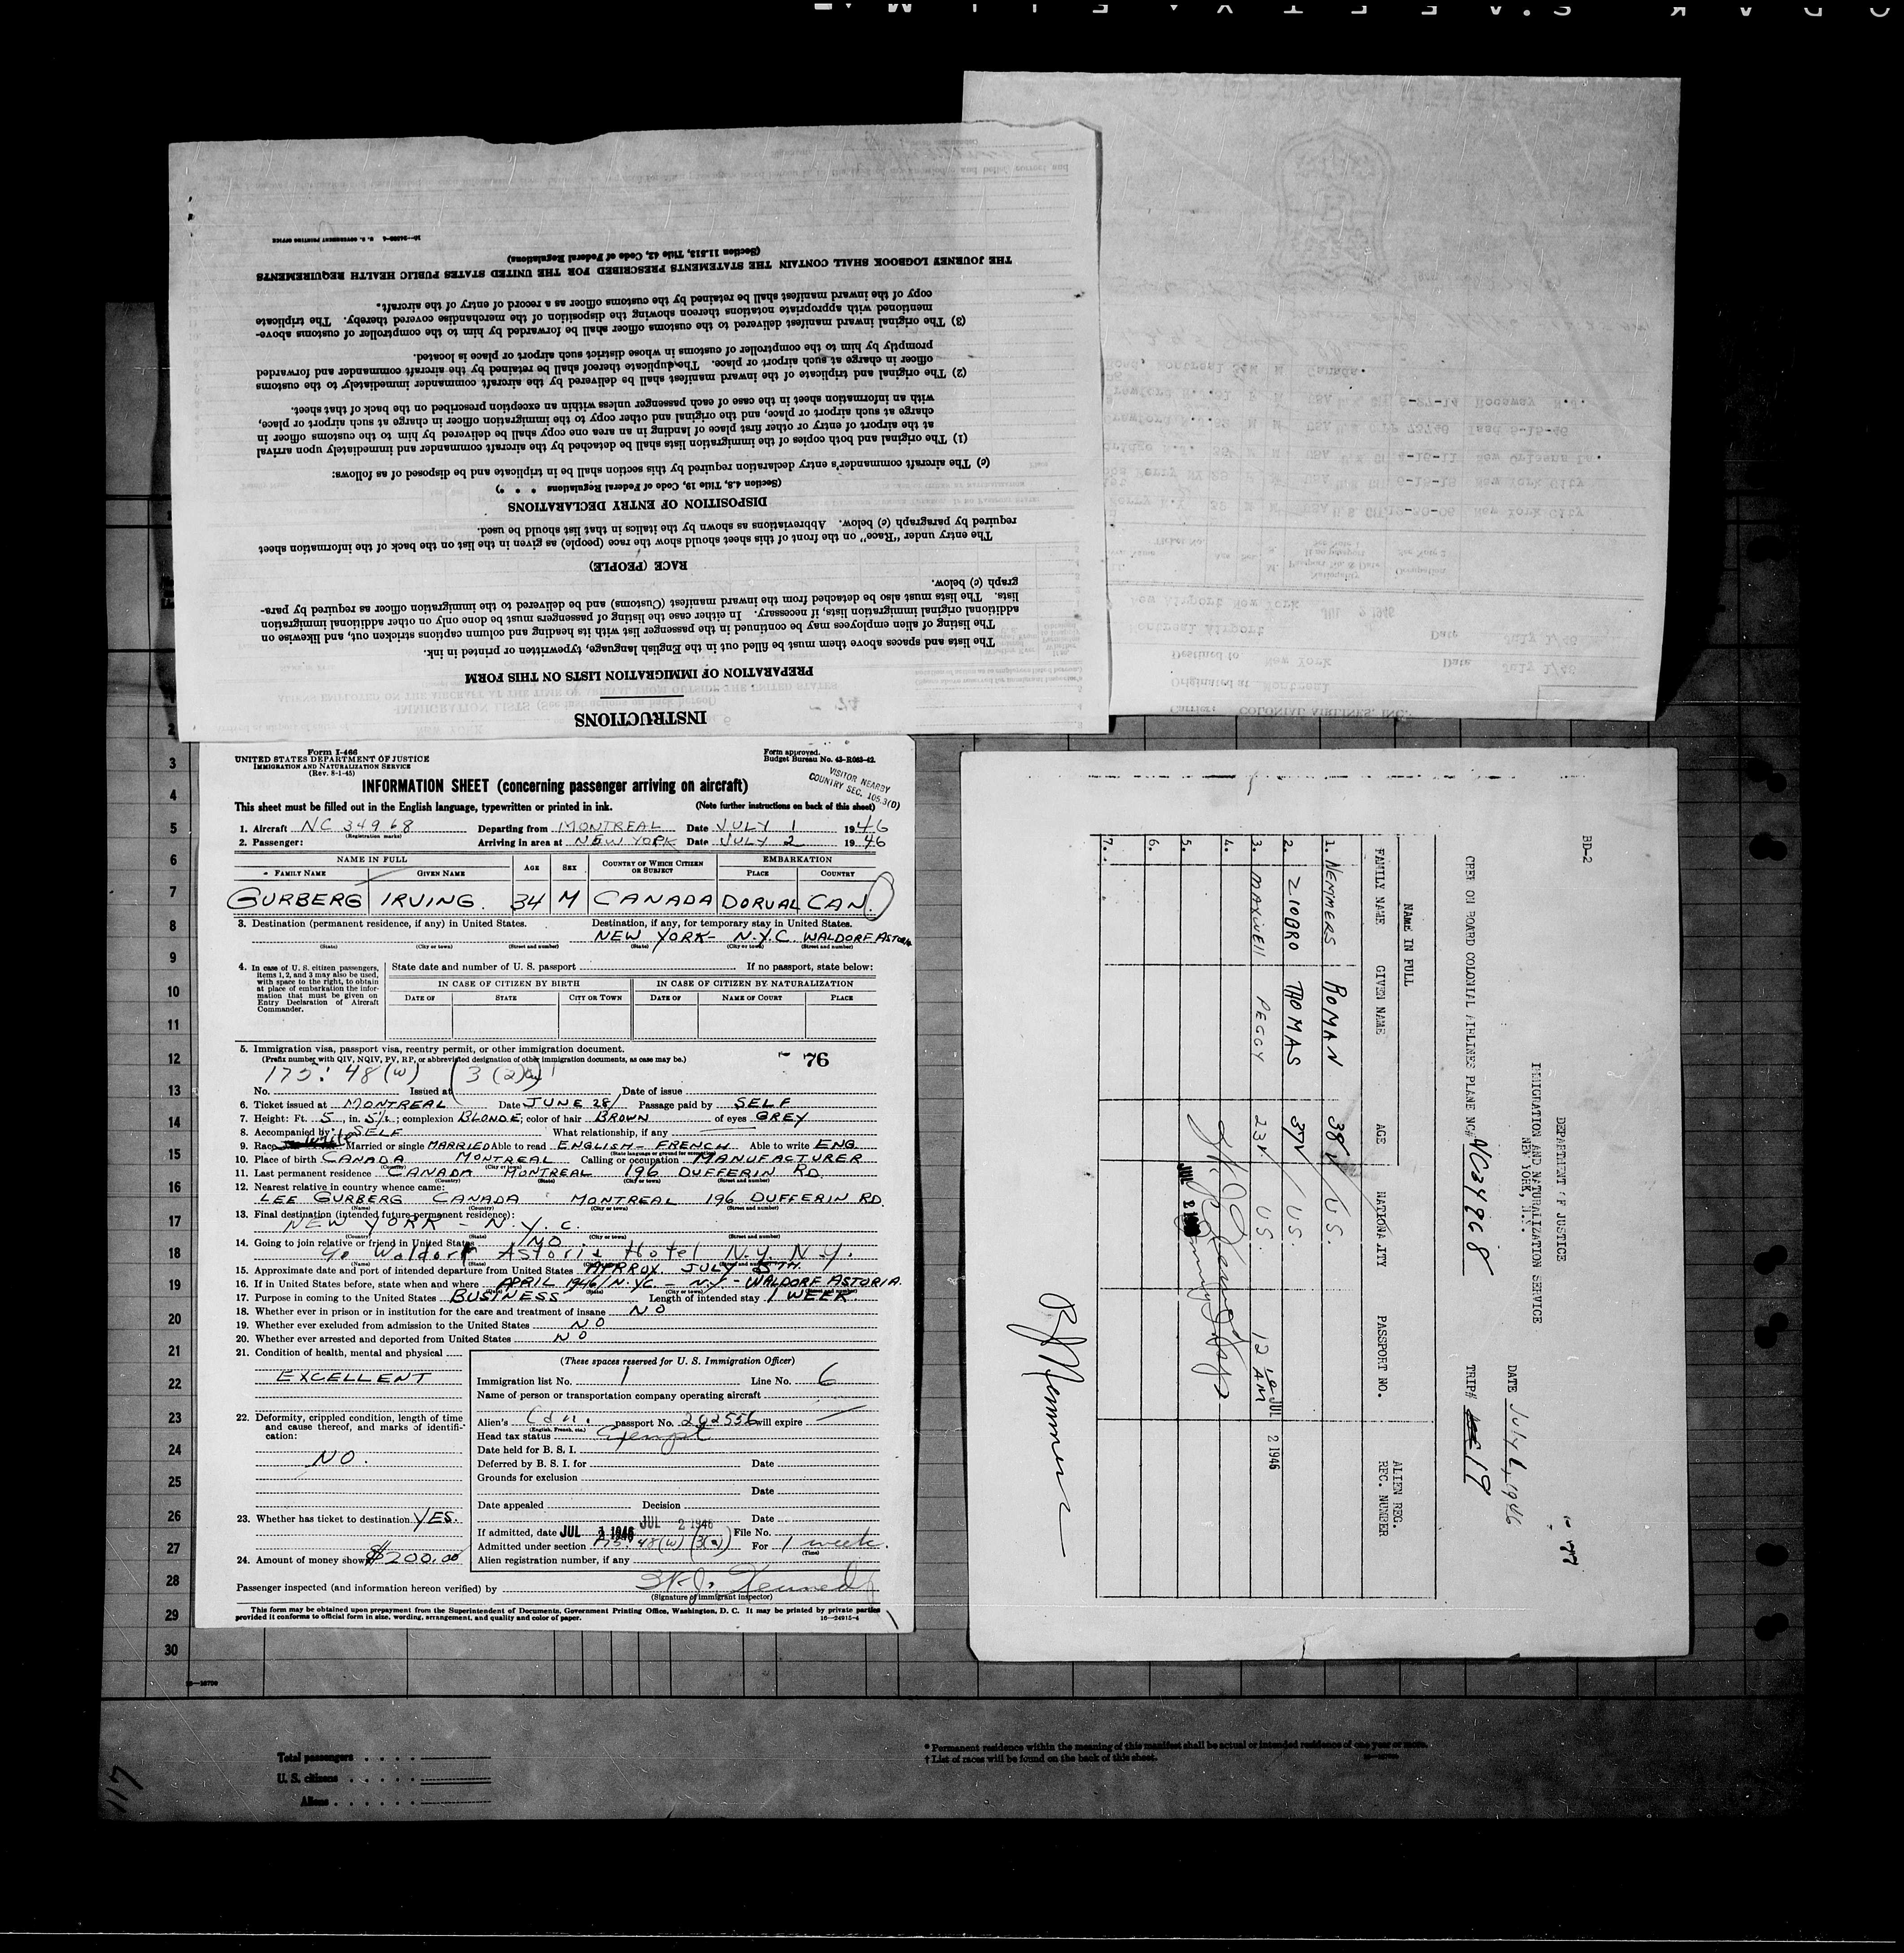 INSTRUCTIONS
PREPARATION OF IMMIGRATION LISTS ON THIS FORM
The lists and spaces above them must be filled out in the English language, typewritten or printed in ink.
The listing of alien employees may be continued in the passenger list with its heading and column captions stricken out, and likewise on
additional original immigration lists, if necessary. In either case the listing of passengers must be done only on other additional immigration
lists. The lists must also be detached from the inward manifest (Customs) and be delivered to the immigration officer as required by para-
graph (c) below.
RACE (PEOPLE)
The entry under "Race" on the front of this sheet should show the race (people) as given in the list on the back of the information sheet
required by paragraph (c) below. Abbreviations as shown by the italics in that list should be used.
DISPOSITION OF ENTRY DECLARATIONS
(Section 4.8, Title 19, Code of Federal Regulations * * *)
(c) The aircraft commander's entry declaration required by this section shall be in triplicate and be disposed of as follows:
(1) The original and both copies of the immigration lists shall be detached by the aircraft commander and immediately upon arrival
at the airport of entry or other first place of landing in an area one copy shall be delivered by him to the customs officer in
charge at such airport or place, and the original and other copy to the immigration officer in charge at such airport or place,
with an information sheet in the case of each passenger unless within an exception prescribed on the back of that sheet.
(2) The original and triplicate of the inward manifest shall be delivered by the aircraft commander immediately to the customs
officer in charge at such airport or place. The duplicate thereof shall be retained by the aircraft commander and forwarded
promptly by him to the comptroller of customs in whose district such airport or place is located.
(3) The original inward manifest delivered to the customs officer shall be forwarded by him to the comptroller of customs above-
mentioned with appropriate notations thereon showing the disposition of the merchandise covered thereby. The triplicate
copy of the inward manifest shall be retained by the customs officer as a record of entry of the aircraft.
THE JOURNEY LOGBOOK SHALL CONTAIN THE STATEMENTS PRESCRIBED FOR THE UNITED STATES PUBLIC HEALTH REQUIREMENTS
(Section 11.513, Title 42, Code of Federal Regulations)
Form I-466
UNITED STATES DEPARTMENT OF JUSTICE
IMMIGRATION AND NATURALIZATION SERVICE
(Rev. 8-1-45)
Form approved.
Budget Bureau No. 43-R063-42.
VISITOR NEARBY
COUNTRY SEC. 105.3(D)
INFORMATION SHEET (concerning passenger arriving on aircraft)
This sheet must be filled out in the English language, typewritten or printed in ink. (Note further instructions on back of this sheet)
1. Aircraft NC 34968 Departing from MONTREAL Date JULY 1 1946
(Registration marks)
2. Passenger: Arriving in area at NEW YORK Date JULY 2 1946
NAME IN FULL AGE SEX COUNTRY OF WHICH CITIZEN OR SUBJECT EMBARKATION
FAMILY NAME GIVEN NAME PLACE COUNTRY
GURBERG IRVING. 34 M CANADA DORVAL CAN.
3. Destination (permanent residence, if any) in United States. Destination, if any, for temporary stay in United States.
NEW YORK- N.Y.C. WALDORF ASTORIA
(State) (City or town) (Street and number) (State) (City or town) (Street and number)
4. In case of U. S. citizen passengers, items 1, 2, and 3 may also be used, with space to the right, to obtain at place of embarkation the information that must be given on Entry Declaration of Aircraft Commander.
State date and number of U. S. passport If no passport, state below:
IN CASE OF CITIZEN BY BIRTH IN CASE OF CITIZEN BY NATURALIZATION
DATE OF STATE CITY OR TOWN DATE OF NAME OF COURT PLACE
5. Immigration visa, passport visa, reentry permit, or other immigration document.
(Prefix number with QIV, NQIV, PV, RP, or abbreviated designation of other immigration documents, as case may be.)
76
175: 48 (w) 3 (2)
No. Issued at Date of issue
6. Ticket issued at MONTREAL Date JUNE 28/ Passage paid by SELF
7. Height: Ft. 5, in. 5½; complexion BLONDE; color of hair BROWN of eyes GREY
8. Accompanied by SELF What relationship, if any
9. Race White Married or single MARRIED Able to read ENGLISH - FRENCH Able to write ENG.
(State language or ground for exemption)
10. Place of birth CANADA MONTREAL Calling or occupation MANUFACTURER
(Country) (City or town)
11. Last permanent residence CANADA MONTREAL 196 DUFFERIN RD.
(Country) (State) (City or town) (Street and number)
12. Nearest relative in country whence came:
LEE GURBERG CANADA MONTREAL 196 DUFFERIN RD.
(Name) (Country) (City or town) (Street and number)
13. Final destination (intended future permanent residence):
NEW YORK - N.Y.C.
(Country) (State) (City or town) (Street and number)
14. Going to join relative or friend in United States NO
Waldorf Astoria Hotel N.Y. N.Y.
(Name) (State)
15. Approximate date and port of intended departure from United States APPROX. JULY 5TH.
16. If in United States before, state when and where APRIL 1946/N.Y.C. - N.Y. - WALDORF ASTORIA.
17. Purpose in coming to the United States BUSINESS Length of intended stay 1 WEEK.
18. Whether ever in prison or in institution for the care and treatment of insane NO
19. Whether ever excluded from admission to the United States NO
20. Whether ever arrested and deported from United States NO
21. Condition of health, mental and physical
EXCELLENT
22. Deformity, crippled condition, length of time
and cause thereof, and marks of identifi-
cation:
NO.
23. Whether has ticket to destination YES.
24. Amount of money shown $200.00
(These spaces reserved for U. S. Immigration Officer)
Immigration list No. 1 Line No. 6
Name of person or transportation company operating aircraft
Alien's Cdn. passport No. 202556 will expire
(English, French, etc.)
Head tax status Exempt
Date held for B. S. I.
Deferred by B. S. I. for Date
Grounds for exclusion
Date
Date appealed Decision
Date
If admitted, date JUL 2 1946 JUL 2 1946 File No.
Admitted under section 175.48(w) (3(2)) For 1 week.
(Time)
Alien registration number, if any
Passenger inspected (and information hereon verified) by W. J. Kennedy
(Signature of immigrant inspector)
This form may be obtained upon prepayment from the Superintendent of Documents, Government Printing Office, Washington, D. C. It may be printed by private parties
provided it conforms to official form in size, wording, arrangement, and quality and color of paper. 16-24915-4
BD-2
DEPARTMENT OF JUSTICE
IMMIGRATION AND NATURALIZATION SERVICE
NEW YORK, N.Y.
DATE July 1, 1946
CREW ON BOARD COLONIAL AIRLINES PLANE NC# NC34968 TRIP# 19
NAME IN FULL
FAMILY NAME GIVEN NAME AGE NATIONALITY PASSPORT NO. ALIEN REG. REC. NUMBER
1. NEMMERS ROMAN 38 U.S.
2. ZIOBRO THOMAS 37 U.S.
3. MAXWELL PEGGY 23 U.S. 12 10 AM JUL 2 1946
4.
5.
6.
7.
JUL 2 1946
R J Nemmers
3
4
5
6
7
8
9
10
11
12
13
14
15
16
17
18
19
20
21
22
23
24
25
26
27
28
29
30
Total passengers
U. S. citizens
Aliens
* Permanent residence within the meaning of this manifest shall be actual or intended residence of one year or more.
† List of races will be found on the back of this sheet.
117